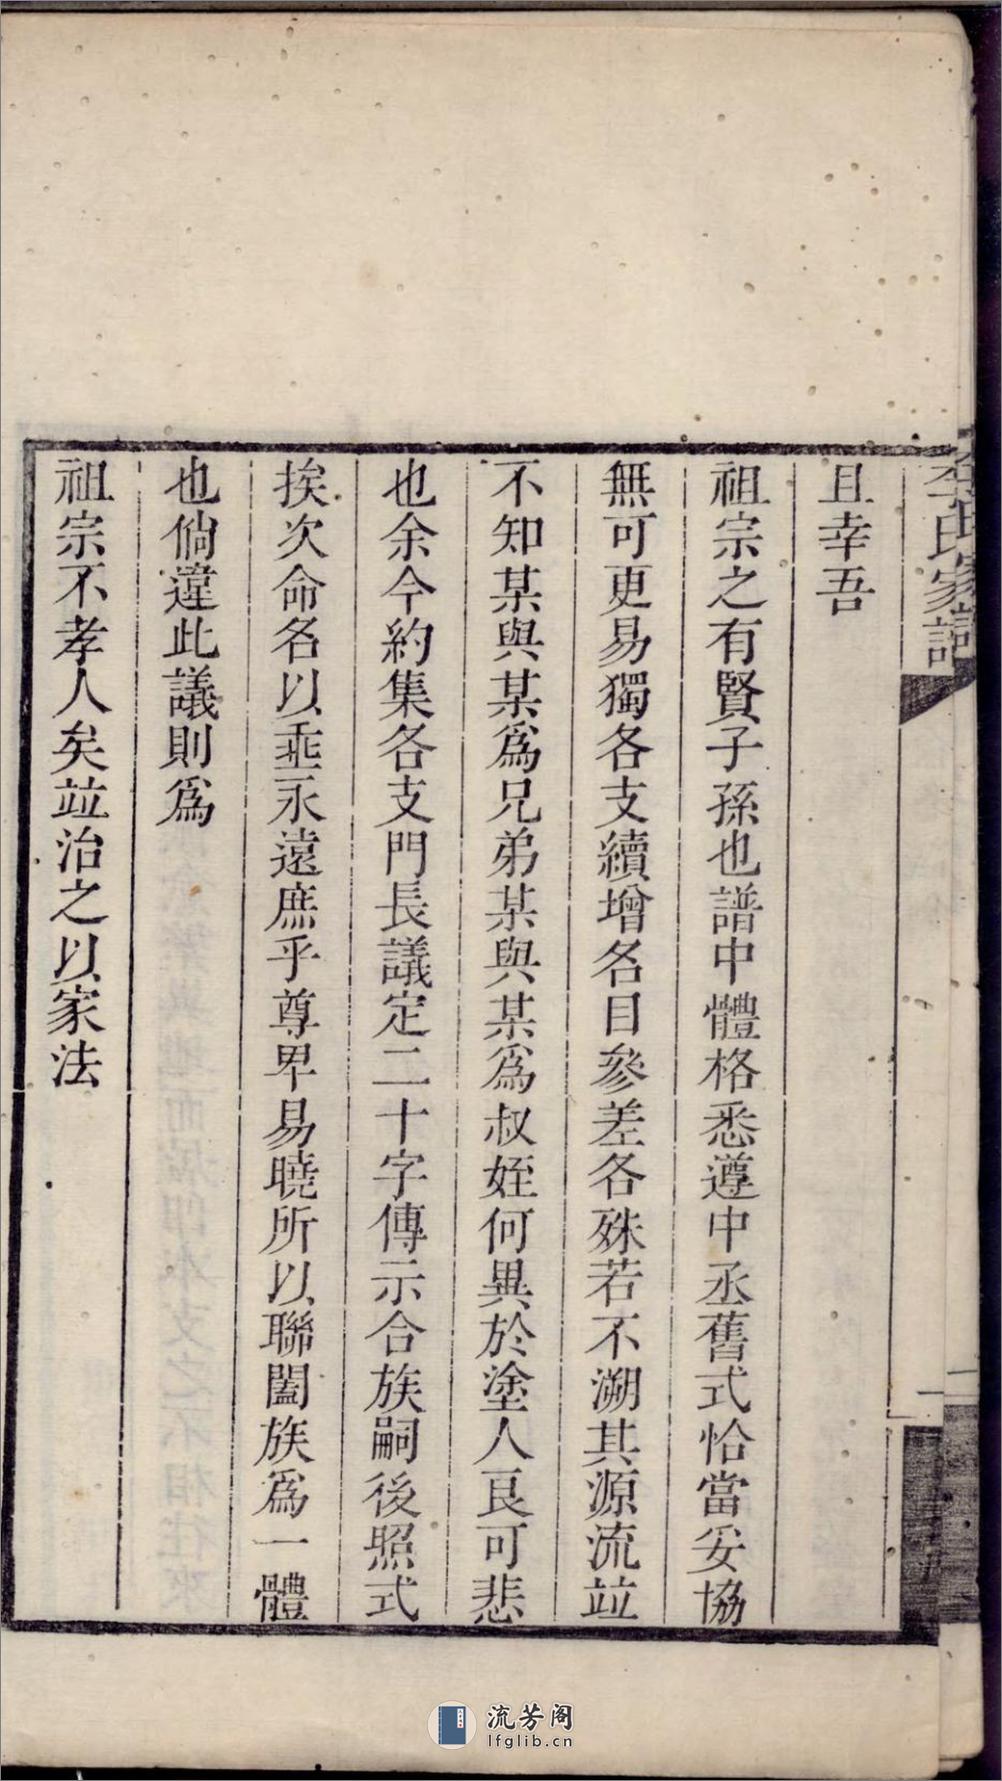 李氏家譜
一
且幸吾
祖宗之有賢子孫也譜中體格悉遵中丞舊式恰當妥協
無可更易獨各支續增名目參差各殊若不溯其源流竝
不知某與某為兄弟某與某為叔姪何異於塗人良可悲
也余今約集各支門長議定二十字傳示合族嗣後照式
挨次命名以垂永遠庶乎尊卑易曉所以聯闔族為一體
也倘違此議則為
祖宗不孝人矣竝治之以家法
流芳阁
lfglib.cn